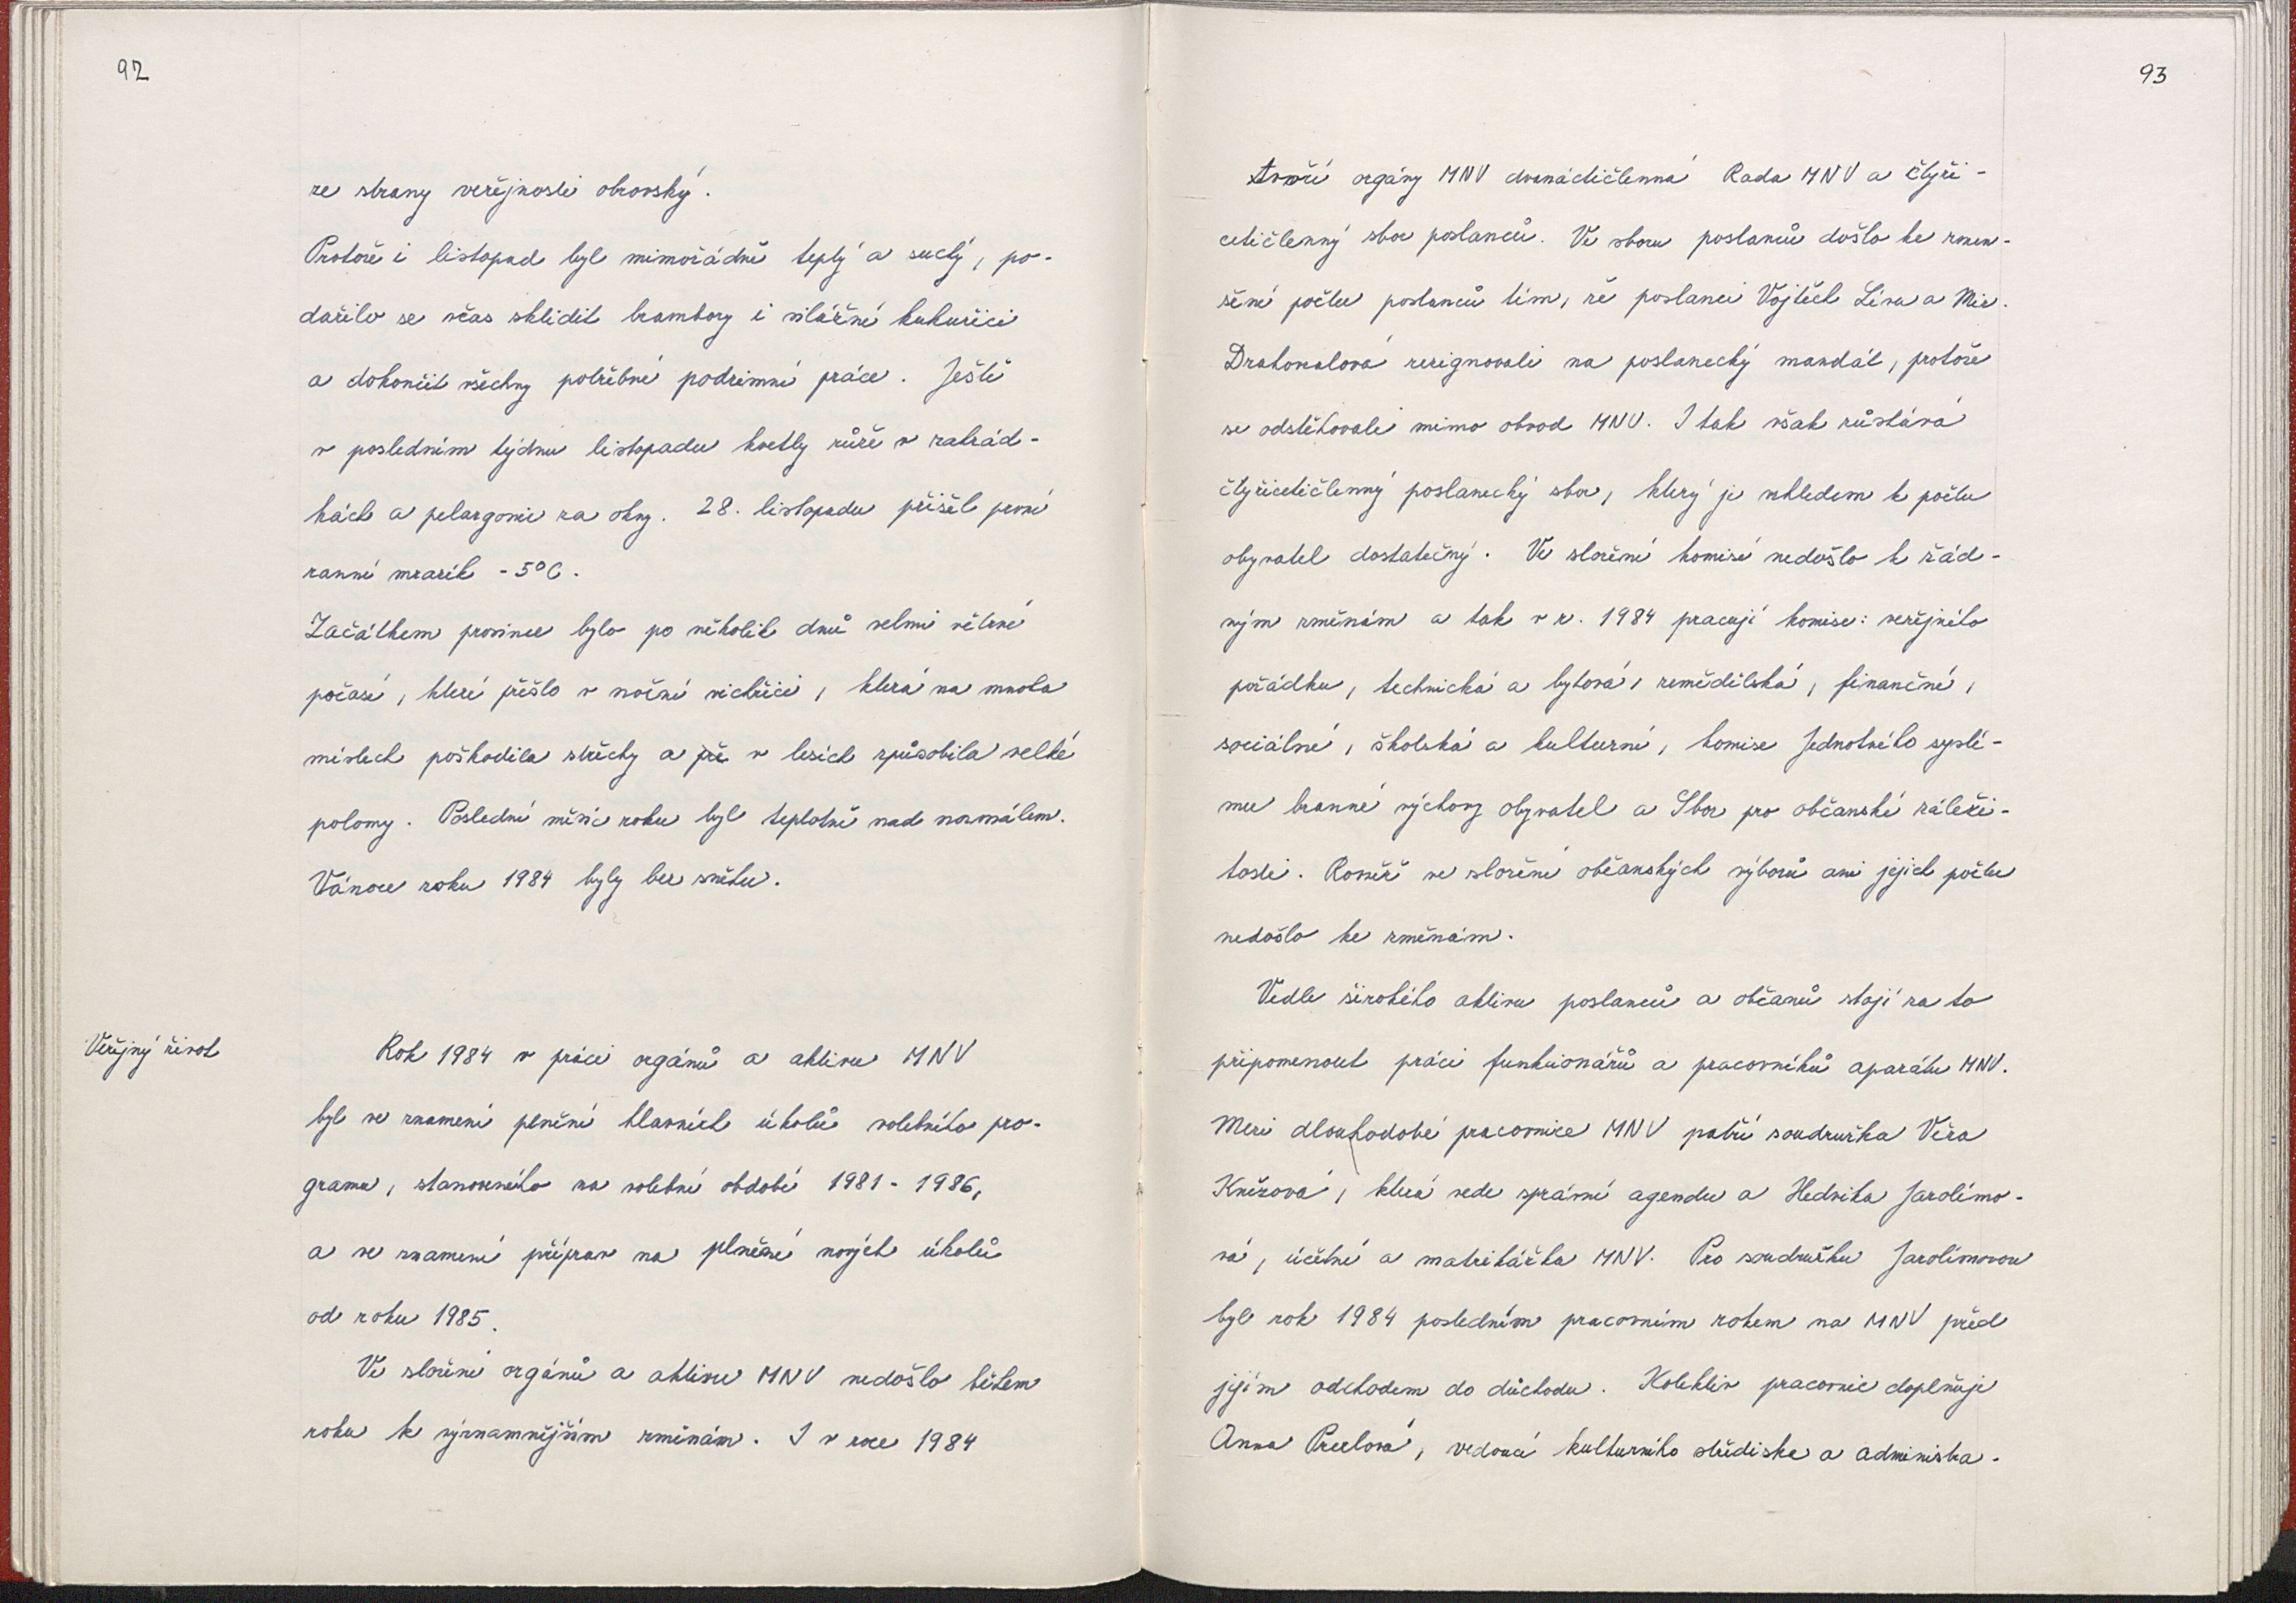 92
ze strany veřejnosti obrovský.
Protože i listopad byl mimořádně teplý a suchý, po-
dařilo se včas sklidit brambory i silážní kukuřici
a dokončit všechny potřebné podzimní práce. Ještě
v posledním týdnu listopadu kvetly růže v zahrád-
kách a pelargonie za okny. 28. listopadu přišel první
ranní mrazík -5°C.
Začátkem prosince bylo po několik dnů velmi větrné
počasí, které přešlo v noční vichřici, která na mnoha
místech poškodila střechy a v lesích způsobila velké
polomy. Poslední měsíc roku byl teplotně nad normálem.
Vánoce roku 1984 byly bez sněhu.
Veřejný život
Rok 1984 v práci orgánů a aktivu MNV
byl ve znamení plnění hlavních úkolů volebního pro-
gramu, stanoveného na volební období 1981 - 1986,
a ve znamení příprav na plnění nových úkolů
od roku 1985.
Ve složení orgánů a aktivu MNV nedošlo během
roku k významnějším změnám. I v roce 1984
93
tvoří orgány MNV dvanáctičlenná Rada MNV a čtyři-
cetičlenný sbor poslanců. Ve sboru poslanců došlo ke zmen-
šení počtu poslanců tím, že poslanci Vojtěch Líva a Mir.
Drahovalová rezignovali na poslanecký mandát, protože
se odstěhovali mimo obvod MNV. I tak však zůstává
čtyřicetičlenný poslanecký sbor, který je vzhledem k počtu
obyvatel dostatečný. Ve složení komisí nedošlo k žád-
ným změnám a tak v r. 1984 pracují komise: veřejného
pořádku, technická a bytová, zemědělská, finanční,
sociální, školská a kulturní, komise Jednotného systé-
mu branné výchovy obyvatel a Sbor pro občanské záleži-
tosti. Rovněž ve složení občanských výborů ani jejich počtu
nedošlo ke změnám.
Vedle širokého aktivu poslanců a občanů stojí za to
připomenout práci funkcionářů a pracovníků aparátu MNV.
Mezi dlouhodobé pracovnice MNV patří soudružka Věra
Kněžová, která vede správní agendu a Hedvika Jarolímo-
vá, účetní a matrikářka MNV. Pro soudružku Jarolímovou
byl rok 1984 posledním pracovním rokem na MNV před
jejím odchodem do důchodu. Kolektiv pracovnic doplňuje
Anna Preclová, vedoucí kulturního střediska a administra-